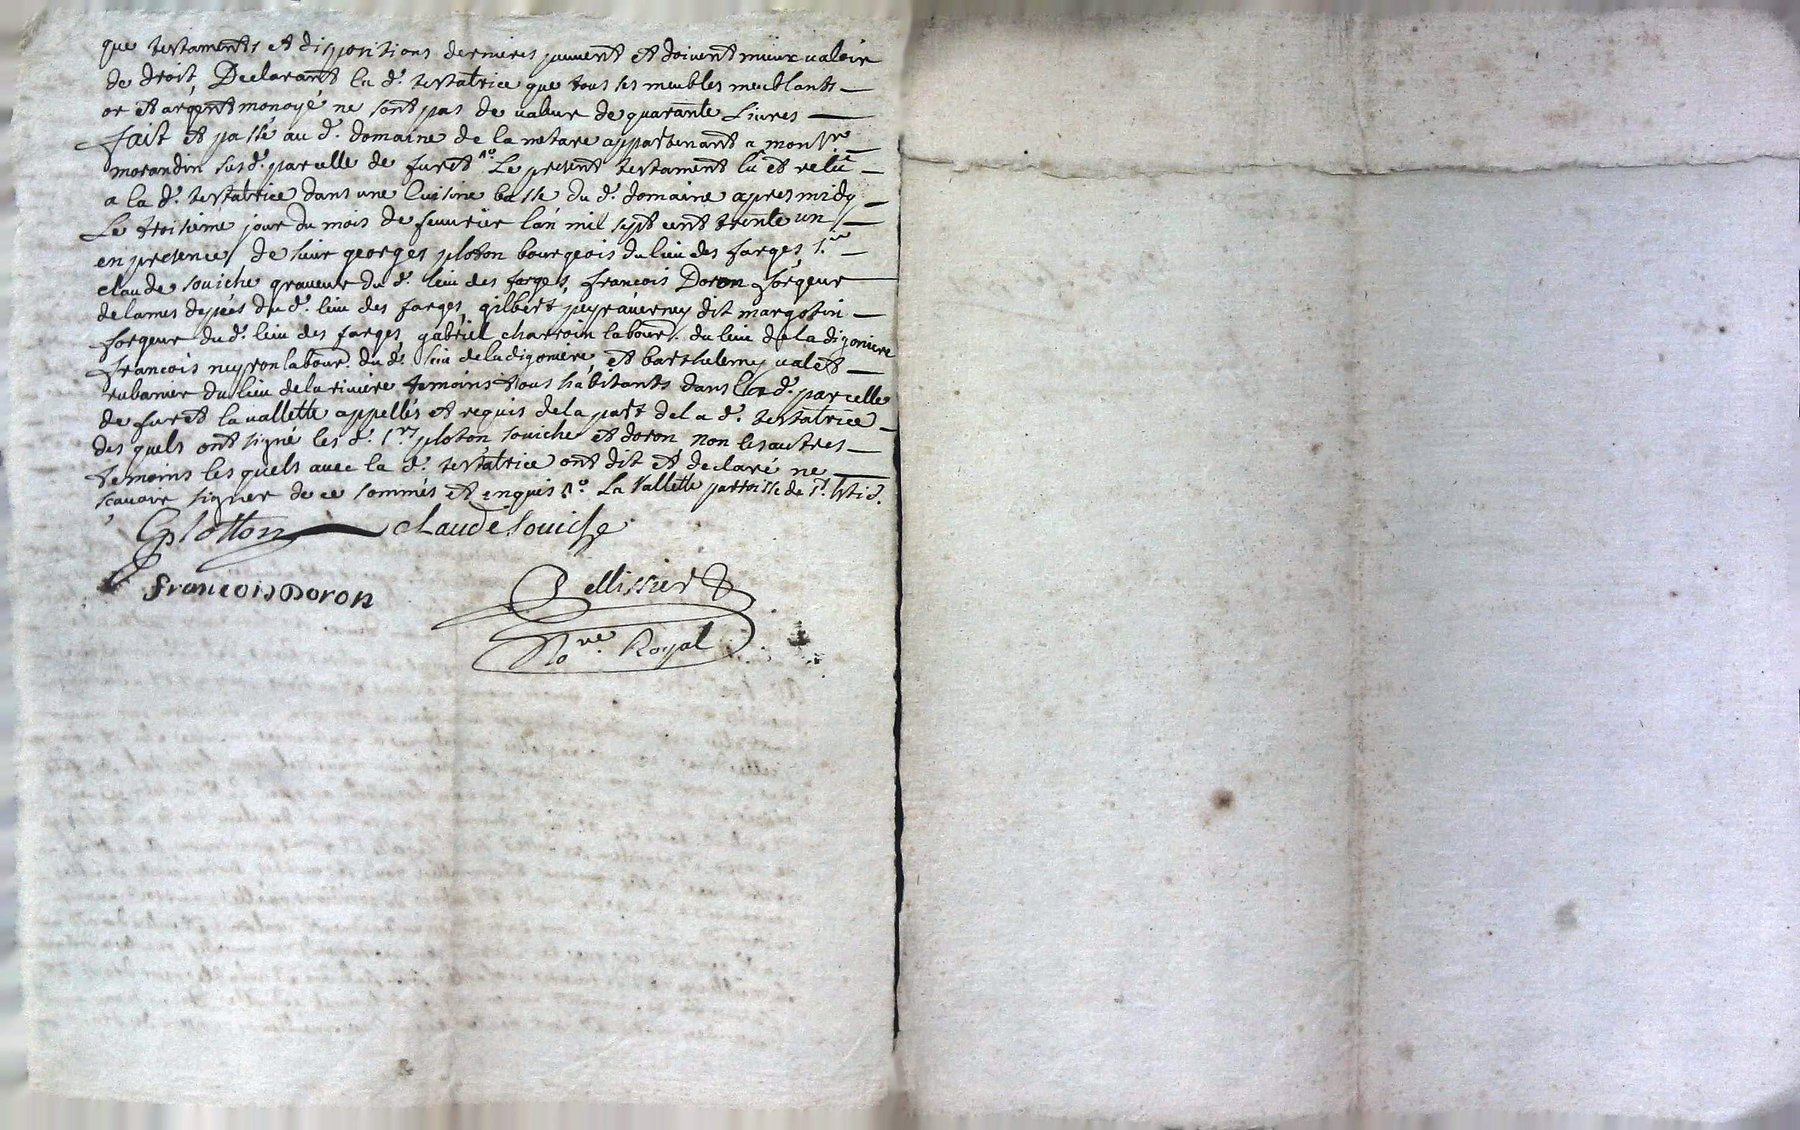 que testaments et dispositions dernieres peuvent et doivent mieux valoir
de droit, Declarant la d.e testatrice que tous ses meubles meublants
or et argent monoyé ne sont pas de valeur de quarante Livres
fait et passé au d.t domaine de la metare appartenant a monsr
morandin susd.t parcelle de furet Le present testament lû et relû
a la d.e testatrice dans une Cuisine basse du d.t domaine apres midy
Le troisieme jour du mois de feuvrier l'an mil sept cent trente un
en presence de sieur georges ploton bourgeois du lieu des farges, s.r
claude souiche graveur du d.t lieu des farges, francois Doron forgeur
de lames depées du d.t lieu des farges, gilbert peyraverney dit margotin
forgeur du d.t lieu des farges, gabriel charroin labour.r du lieu de la digoniere
francois neyron labour.r du d.t lieu de la digoniere, et barthelemy valet
rubanier du lieu de la riviere temoins tous habitants dans la d.e parcelle
de furet la vallette appellés et requis de la part de la d.e testatrice
des quels ont signé les d.ts s.rs ploton souiche et doron non les autres
temoins les quels avec la d.e testatrice ont dit et declaré ne
scavoir signer de ce sommés et enquis La Vallette parroisse de s.t
Gplotton claude souiche
francois Doron
Pellissier
No.re Royal